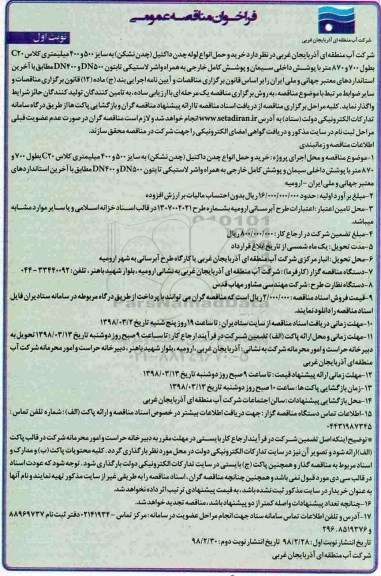 فراخوان مناقصه عمومی
شرکت آب منطقه ای آذربایجان غربی
نوبت اول
شرکت آب منطقه ای آذربایجان غربی در نظر دارد خرید و حمل انواع لوله چدن داکتیل (چدن نشکن) به سایز ۵۰۰ و ۴۰۰ میلیمتری کلاس C۲۰
بطول ۷۰۰ و ۸۷۰ متر با پوشش داخلی سیمان و پوشش کامل خارجی به همراه واشر لاستیکی تایتون DN۵۰۰ و DN۴۰۰ مطابق با آخرین
استانداردهای معتبر جهانی و ملی ایران را بر اساس قانون برگزاری مناقصات و آیین نامه اجرایی بند (ج) ماده (۱۲) قانون برگزاری مناقصات و
سایر ضوابط مرتبط با موضوع مناقصه، به روش برگزاری مناقصه یک مرحله ای با ارزیابی ساده، به تامین کنندگان تولید کنندگان حائز شرایط
واگذار نماید. کلیه مراحل برگزاری مناقصه از دریافت اسناد مناقصه تا ارائه پیشنهاد مناقصه گران و بازگشایی پاکت ها از طریق درگاه سامانه
تدارکات الکترونیکی دولت (ستاد) به آدرس www.setadiran.ir انجام خواهد شد و لازم است مناقصه گران در صورت عدم عضویت قبلی
مراحل ثبت نام در سایت مذکور و دریافت گواهی امضای الکترونیکی را جهت شرکت در مناقصه محقق سازند.
اطلاعات مناقصه و زمانبندی
۱- موضوع مناقصه و محل اجرای پروژه : خرید و حمل انواع چدن داکتیل (چدن نشکن) به سایز ۵۰۰ و ۴۰۰ میلیمتری کلاس C۲۰ بطول ۷۰۰ و
۸۷۰ متر با پوشش داخلی سیمان و پوشش کامل خارجی به همراه واشر لاستیکی تایتون DN۵۰۰ و DN۴۰۰ مطابق با آخرین استانداردهای
معتبر جهانی و ملی ایران - ارومیه
۲- مبلغ برآورد اولیه: حدود ۱۶/۰۰۰/۰۰۰/۰۰۰ ریال بدون احتساب مالیات بر ارزش افزوده
۳- محل تامین اعتبار: اعتبارات طرح آبرسانی ارومیه بشماره طرح ۱۳۰۷۰۰۲۰۲۱ در قالب اسناد خزانه اسلامی و یا سایر موارد مشابه
میباشد.
۴- مبلغ تضمین شرکت در ارجاع کار: ۸۰۰/۰۰۰/۰۰۰ ریال
۵- مدت تحویل: یک ماه شمسی از تاریخ ابلاغ قرارداد
۶- محل تحویل: انبار مرکزی شرکت آب منطقه ای آذربایجان غربی یا کارگاه طرح آبرسانی به شهر ارومیه
۷- دستگاه مناقصه گزار (کارفرما): شرکت آب منطقه ای آذربایجان غربی به نشانی ارومیه، بلوار شهید باهنر، تلفن: ۳۳۴۴۰۰۹۲-۰۴۴
۸- دستگاه نظارت طرح: شرکت مهندسی مشاور مهاب قدس
۹- قیمت فروش اسناد مناقصه: ۲/۰۰۰/۰۰۰ ریال است که مناقصه گران می توانند با پرداخت از طریق درگاه مربوطه در سامانه ستاد ایران فایل
اسناد مناقصه را دانلود نمایند.
۱۰- مهلت زمانی دریافت اسناد مناقصه از سایت ستاد ایران: تا ساعت ۱۹ روز پنج شنبه تاریخ ۱۳۹۸/۰۳/۲
۱۱- مهلت زمانی و محل ارائه پاکت (الف) تضمین شرکت در فرآیند ارجاع کار: تا ساعت ۹ صبح روز دوشنبه تاریخ ۱۳۹۸/۰۳/۱۳ تحویل به
دبیرخانه حراست و امور محرمانه شرکت به نشانی: آذربایجان غربی، ارومیه، بلوار شهید باهنر، دبیرخانه حراست و امور محرمانه شرکت آب
منطقه ای آذربایجان غربی
۱۲- مهلت زمانی ارائه پیشنهاد قیمت: تا ساعت ۹ صبح روز دوشنبه تاریخ ۱۳۹۸/۰۳/۱۳
۱۳- زمان بازگشایی پاکت ها: ساعت ۱۰ صبح روز دوشنبه تاریخ ۱۳۹۸/۰۳/۱۳
۱۴- محل بازگشایی پیشنهادات: سالن اجتماعات شرکت آب منطقه ای آذربایجان غربی
۱۵- اطلاعات تماس دستگاه مناقصه گزار: جهت دریافت اطلاعات بیشتر در خصوص اسناد مناقصه و ارائه پاکت (الف): شماره تلفن تماس:
۰۴۴۳۱۹۸۷۳۴۵
* توضیح اینکه اصل تضمین شرکت در فرآیند ارجاع کار بایستی در مهلت مقرر به دبیرخانه حراست و امور محرمانه شرکت در قالب پاکت
(الف) ارائه شود و تصویر آن نیز در سایت تدارکات الکترونیکی دولت در محل مورد نظر بارگذاری گردد. کلیه محتویات پاکت (ب) و مدارک و
اسناد مربوط به مناقصه گذار و همچنین پاکت (ج) بایستی در سایت تدارکات الکترونیکی دولت بارگذاری شود. توجه شود که عودت اسناد
در قالب سی دی مورد قبول نمی باشد و همچنین چنانچه مناقصه گران، اسناد مناقصه را به طریقی غیر از سایت مذکور تهیه نمایند و نام آنها
به عنوان خریدار در سایت مذکور ثبت نشده باشد، به قیمت پیشنهادی ترتیب اثر داده نخواهد شد.
۱۶- چنانچه تعداد پیشنهادات واصله کمتر از دو پیشنهاد باشد، مناقصه تجدید خواهد شد.
۱۷- آدرس و تلفن اطلاعات تماس سامانه ستاد جهت انجام مراحل عضویت در سامانه: مرکز تماس ۴۱۹۳۴-۰۲۱ دفتر ثبت نام ۸۸۹۶۹۷۳۷
و ۸۵۱۹۳۷۶
تاریخ انتشار نوبت اول: ۹۸/۲/۲۸ تاریخ انتشار نوبت دوم: ۹۸/۲/۳۰
شرکت آب منطقه ای آذربایجان غربی